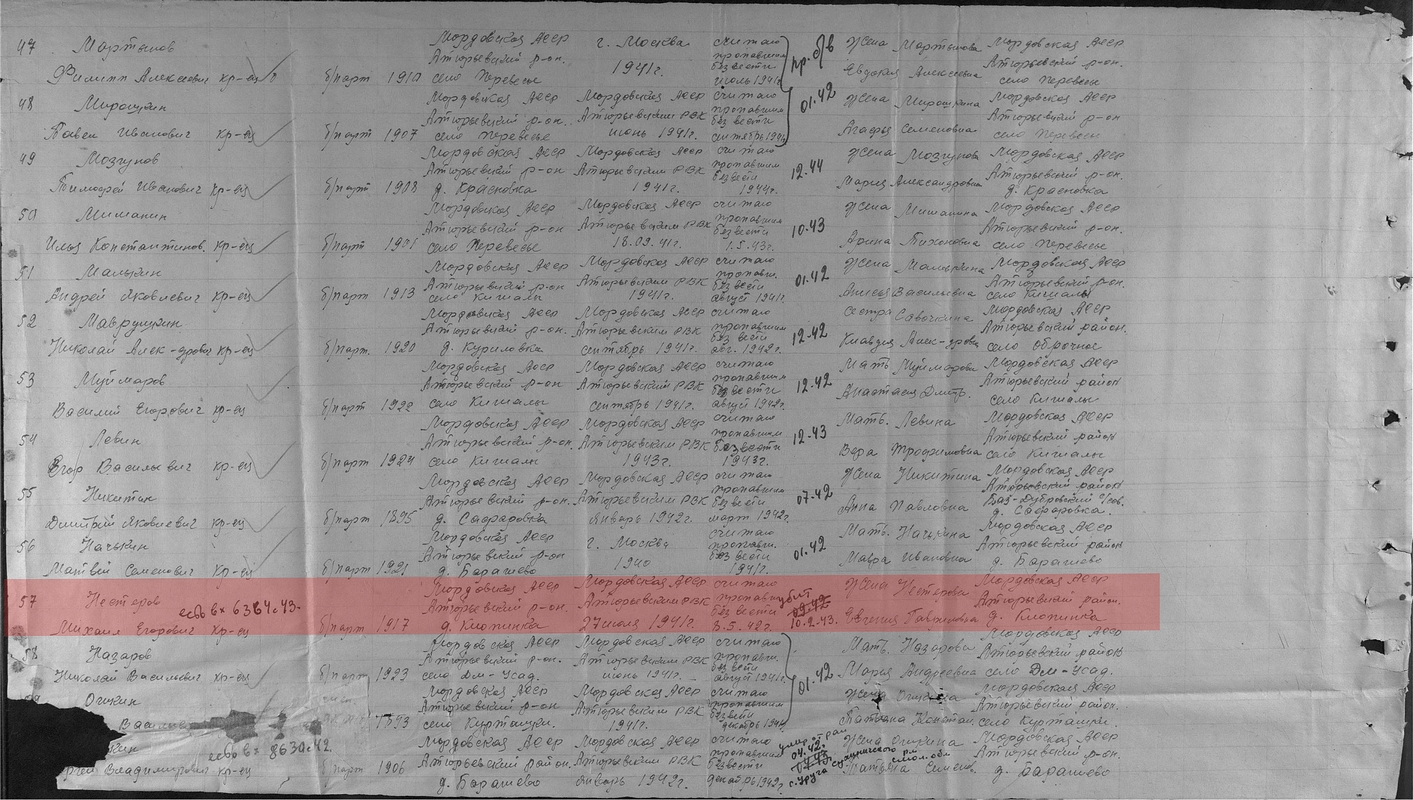 47 Мартынов
Филипп Алексеевич кр-ец б/парт 1910 Мордовская Асср Атюрьевский р-он. село Перевесье г. Москва 1941г. считаю пропавшим без вести июль 1941г. пр. б/в Жена Мартынова Евдокия Алексеевна Мордовская Асср Атюрьевский р-он. село Перевесье
48 Мирошкин
Павел Иванович кр-ец б/парт 1907 Мордовская Асср Атюрьевский р-он. село Перевесье Мордовская Асср Атюрьевский РВК июнь 1941г. считаю пропавшим без вести сентябрь 1941г. 01.42 Жена Мирошкина Агафья Семеновна Мордовская Асср Атюрьевский р-он. село Перевесье
49 Мозгунов
Тимофей Иванович кр-ец б/парт 1908 Мордовская Асср Атюрьевский р-он д. Красновка Мордовская Асср Атюрьевский РВК 1941г. считаю пропавшим без вести 1944г. 12.44 Жена Мозгунова Мария Александровна Мордовская Асср Атюрьевский р-он. д. Красновка
50 Мишанин
Илья Константинов. кр-ец б/парт 1901 Мордовская Асср Атюрьевский р-он. село Перевесье Мордовская Асср Атюрьевским РВК 18.09.41г. считаю пропавшим без вести 1.5.43г. 10.43 Жена Мишанина Арина Тихоновна Мордовская Асср Атюрьевский р-он. село Перевесье
51 Малыкин
Андрей Яковлевич кр-ец б/парт 1913 Мордовская Асср Атюрьевский р-он село Кишалы Мордовская Асср Атюрьевским РВК 1941г. считаю пропавш. без вести август 1941г. 01.42 Жена Малыкина Анисья Васильевна Мордовская Асср Атюрьевский р-он. село Кишалы
52 Маврушкин
Николай Алек-дрович кр-ец б/парт 1920 Мордовская Асср Атюрьевский р-он. д. Куриловка Мордовская Асср Атюрьевским РВК сентябрь 1941г. считаю пропавшим без вести авг. 1942г. 12.42 Сестра Савочкина Клавдия Алек-дровна Мордовская Асср Атюрьевский район. село Оброчное
53 Муймаров
Василий Егорович кр-ец б/парт 1922 Мордовская Асср Атюрьевский р-он село Кишалы Мордовская Асср Атюрьевским РВК сентябрь 1941г. считаю пропавшим без вести август 1942г. 12.42 Мать Муймарова Анастасия Дмитр. Мордовская Асср Атюрьевский район село Кишалы
54 Левин
Егор Васильевич кр-ец б/парт 1924 Мордовская Асср Атюрьевский р-он. село Кишалы Мордовская Асср Атюрьевским РВК 1943г. считаю пропавшим без вести 1943г. 12.43 Мать. Левина Вера Трофимовна Мордовская Асср Атюрьевский район село Кишалы
55 Никитин
Дмитрий Яковлевич кр-ец б/парт 1895 Мордовская Асср Атюрьевский р-он. д. Сафаровка Мордовская Асср Атюрьевским РВК январь 1942г. считаю пропавшим без вести март 1942г. 07.42 Жена Никитина Анна Павловна Мордовская Асср Атюрьевский район д. Сафаровка.
56 Начькин
Матвей Семенович кр-ец б/парт 1921 Мордовская Асср Атюрьевский р-он д. Барашево г. Москва 1940 считаю пропавш. без вести 1941г. 01.42 Мать. Начькина Мавра Ивановна Мордовская Асср Атюрьевский район д. Барашево
57 Нестеров есть вх 6364с43.
Михаил Егорович кр-ец б/парт 1917 Мордовская Асср Атюрьевский р-он. д. Клопинка Мордовская Асср Атюрьевским РВК 27 июля 1941г. считаю пропавшим без вести 8.5.42г. убит 09.42 10.2.43. Жена Нестерова Евгения Гавриловна Мордовская Асср Атюрьевский район. д. Клопинка
58 Назаров
Николай Васильевич кр-ец б/парт 1923 Мордовская Асср Атюрьевский р-он. село Дм-Усад. Мордовская Асср Атюрьевским РВК июнь 1941г. считаю пропавш. без вести август 1941г. 01.42 Мать. Назарова Мария Андреевна Мордовская Асср Атюрьевский район село Дм-Усад.
Ошкин
1893 Мордовская Асср Атюрьевский р-он. село Курташки. Мордовская Асср Атюрьевским РВК 1941г. считаю пропавшим без вести декабрь 1941г. Жена Ошкина Татьяна Констан. Мордовская Асср Атюрьевский район. село Курташки.
есть вх 8630с42
Владимирович кр-ец б/парт 1906 Мордовская Асср Атюрьевский район. д. Барашево Мордовская Асср Атюрьевским РВК январь 1942г. считаю пропавшим без вести декабрь 1942г. умер от ран 04.42. Жена Ошкина Татьяна Семенов. Мордовская Асср Атюрьевский р-он. д. Барашево